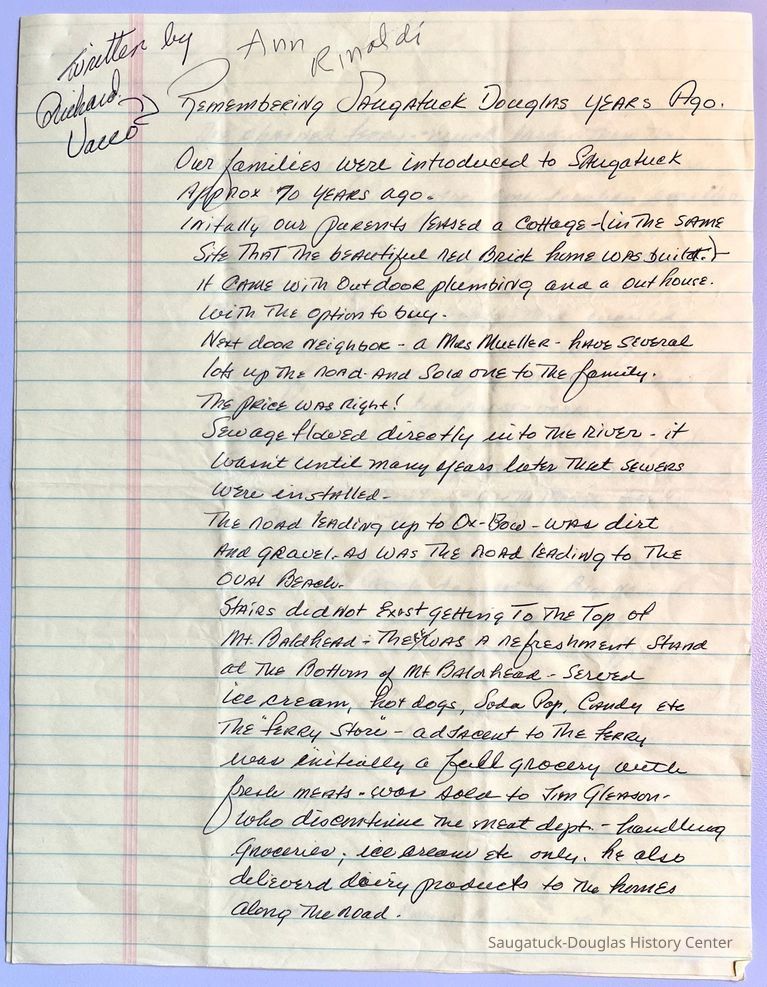 written by
Richard
Vacco
Ann Rinaldi
Remembering Saugatuck Douglas years Ago.
Our families were introduced to Saugatuck
Approx 70 years ago.
Initally our parents leased a cottage - (in the same
Site That The beautiful red Brick home was built.) -
It came with outdoor plumbing and a outhouse.
With the option to buy.
Next door neighbor - a Mrs Mueller - have several
lots up the road - And Sold one to the family.
The price was right!
Sewage flowed directly into the River - it
wasn't until many years later that sewers
were installed -
The road leading up to Ox-Bow - was dirt
And gravel - As was the road leading to the
Oval Beach.
Stairs did not Exist getting To The Top of
Mt. Baldhead - There was a refreshment Stand
at The Bottom of Mt Baldhead - Served
ice cream, hot dogs, Soda Pop, Candy etc
The "Ferry Store" - adjacent to the ferry
was initially a full grocery with
fresh meats - was sold to Jim Gleason -
who discontinue the meat dept. - handling
Groceries, ice cream etc only. he also
deliverd dairy products to the homes
along The road.
Saugatuck-Douglas History Center